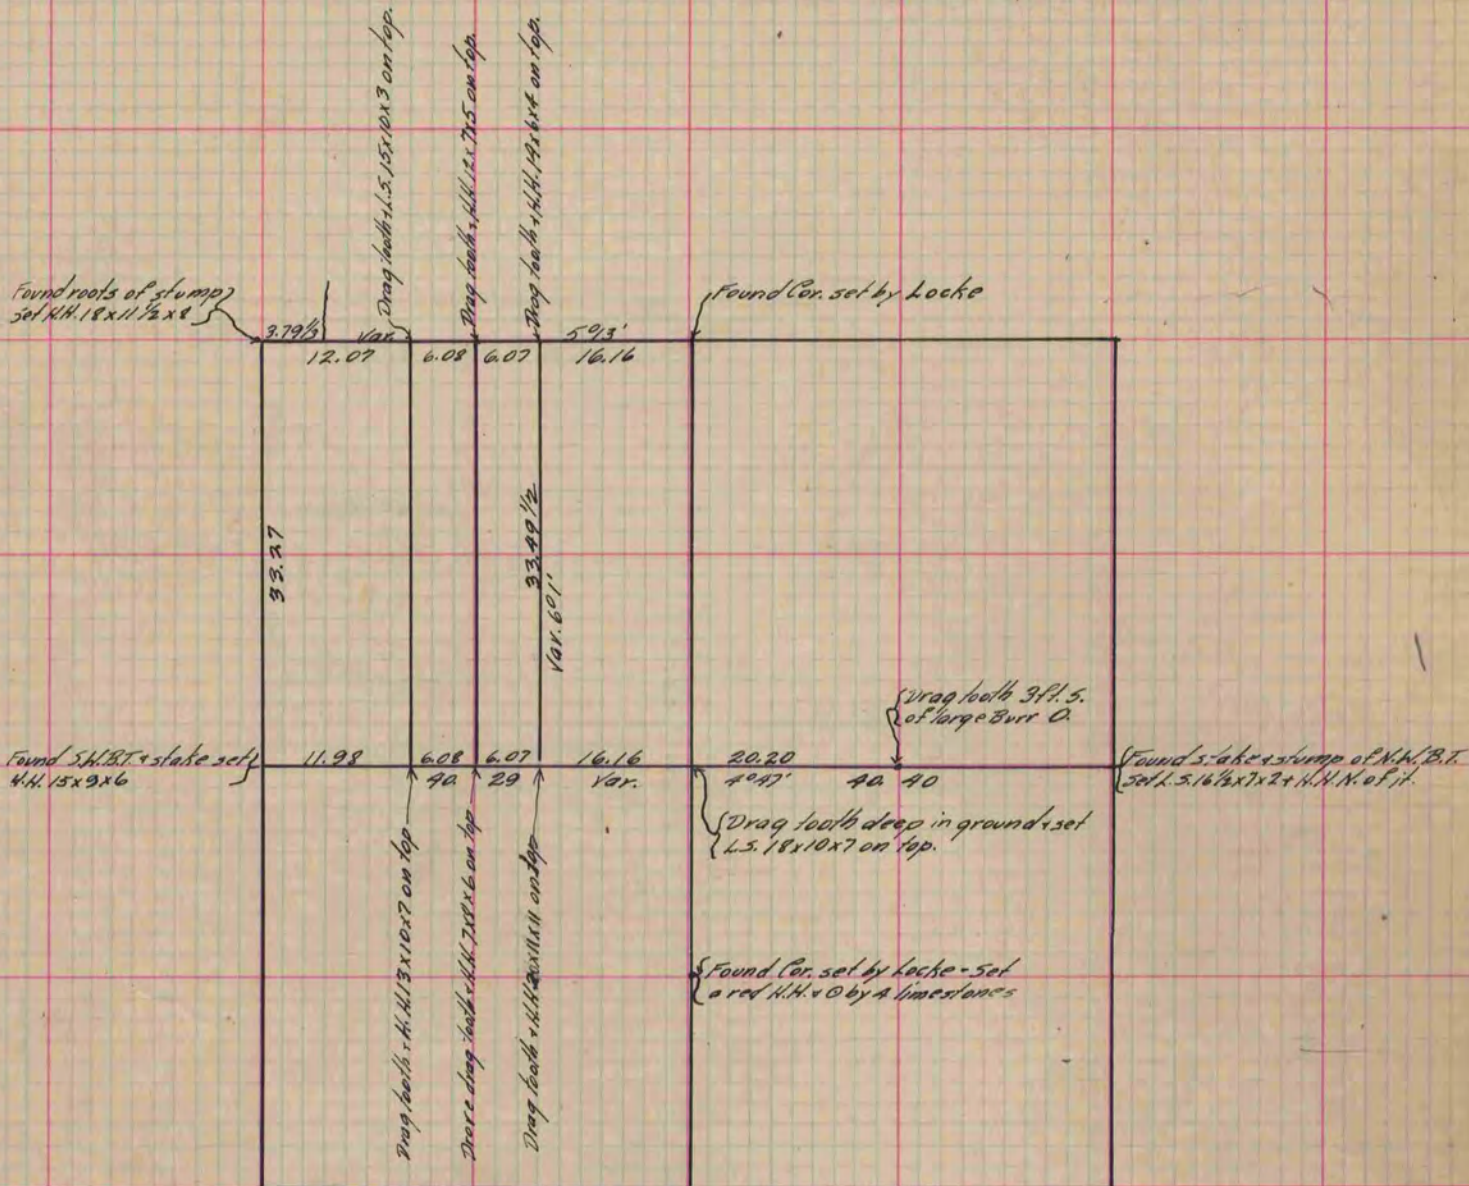 Drag tooth + L.S. 15x10x3 on top.
Drag tooth + H.H. 12x7x5 on top.
Drag tooth + H.H. 14x6x4 on top.
Found roots of stump
set H.H. 18x11 1/2 x 8
Found Cor. set by Locke
3.79 1/3 Var. 5°13'
12.07 6.08 6.07 16.16
33.27
33.49 1/2
Var. 6°1'
Drag tooth 3 ft. S.
of large Burr O.
Found S.W.B.T. + stake set
H.H. 15x9x6
11.98 6.08 6.07 16.16 20.20
40. 29 Var. 4°47' 40. 40
Found stake + stump of N.W.B.T.
Set L.S. 16 1/2 x7x2 + H.H. N. of it.
Drag tooth deep in ground + set
L.S. 18x10x7 on top.
Drag tooth + H.H. 13x10x7 on top
Drove drag tooth + H.H. 7x8x6 on top
Drag tooth + H.H. 20x11x11 on top
Found Cor. set by Locke - Set
a red H.H. + O by 4 limestones